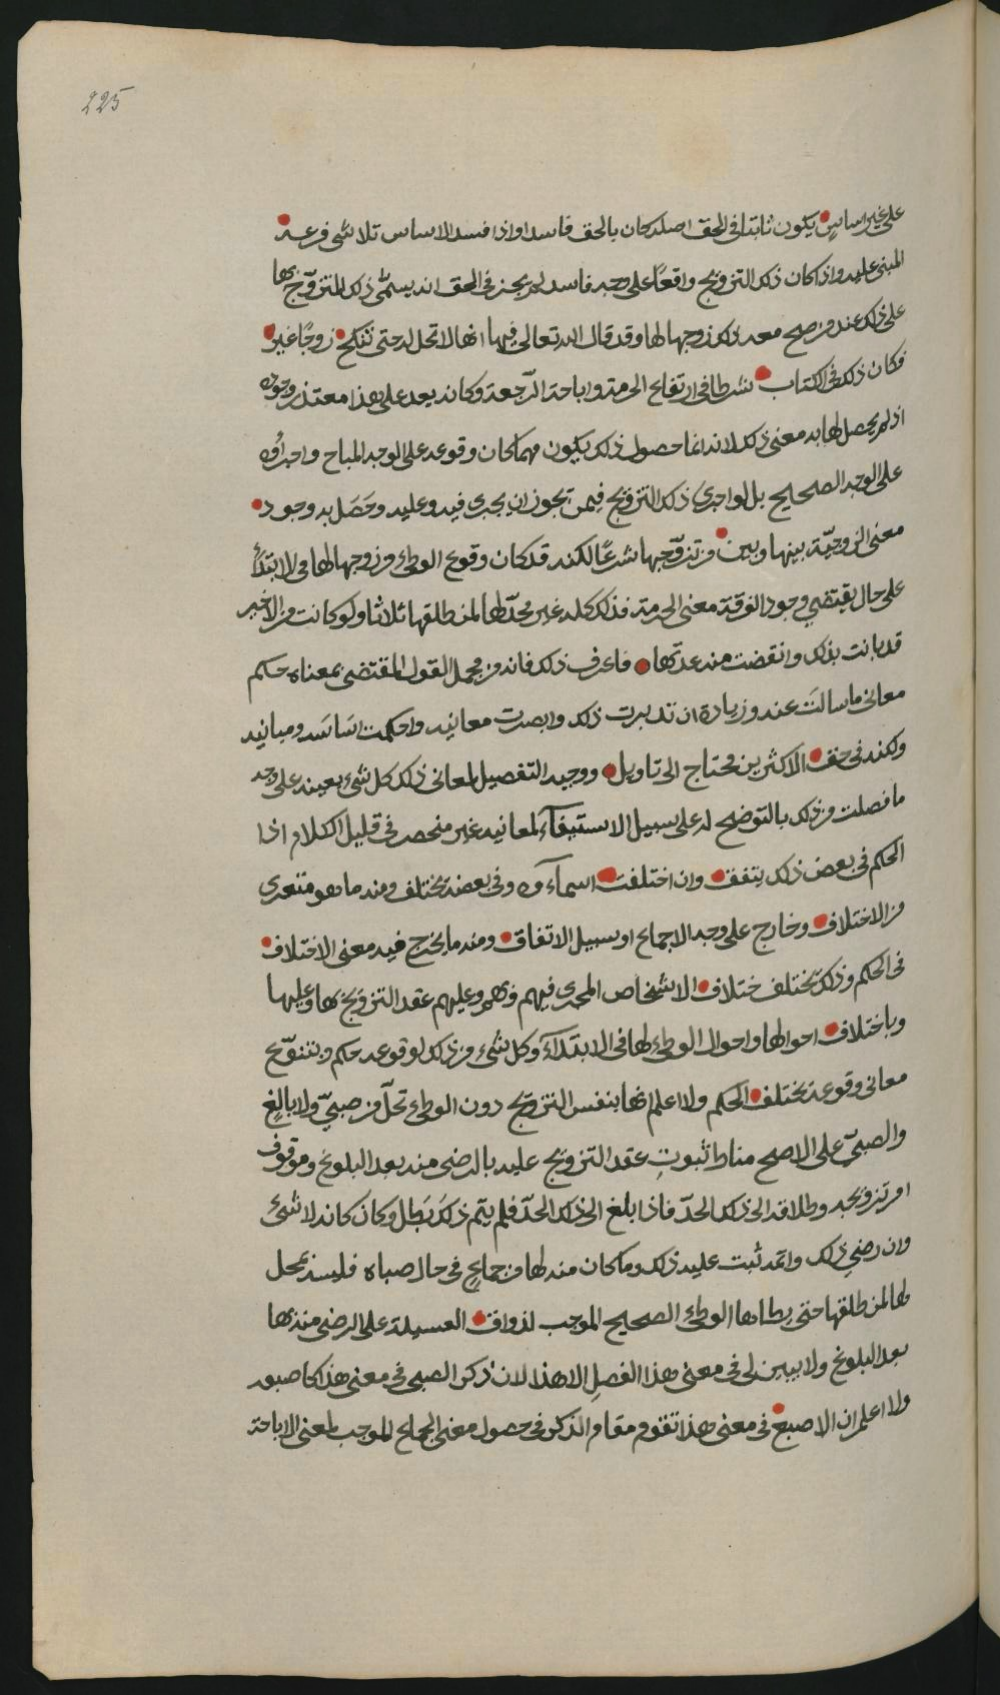 225
على غير اساس يكون ثابتا في الحق اصله كان بالحق فاسدا واذا فسد الاساس تلاشى فرعه
المبني عليه واذا كان ذلك التزويج واقعا على وجه فاسد لم يجز في الحق انه يسمى ذلك المتزوج بها
على ذلك عند من صح معه ذلك زوجها لها وقد قال الله تعالى فيها انها لا تحل له حتى تنكح زوجًا غيره
فكان ذلك في الكتاب شرطا في ارتفاع الحرمة واباحة الرجعة وكانه يعد على هذا معتذر وجوده
اذ لم يحصل لها به معنى ذلك لانه انما حصول ذلك يكون مهما كان وقوعه على الوجه المباح واجراؤه
على الوجه الصحيح بل لو اجرى ذلك التزويج فيمن يجوز ان يجري فيه وعليه وحَصَل به وجود
معنى الزوجيّة بينها وبين من تزوّجها شرعًا لكنه قد كان وقوع الوطء من زوجها لها في الابتداء
على حال يقتضي وجود الفرقة معنى الحرمة فذلك كله غير محلّ لها لمن طلقها ثلاثا ولو كانت من الاخير
قد بانت بذلك وانقضت منه عدتها فاعرف ذلك فانه من مجمل القول المقتضي بمعناه حكم
معاني ما سالتَ عنه وزيادة ان تدبرت ذلك وابصرت معانيه واحكمت اسَاسَه ومبانيه
ولكنه في حق الاكثرين محتاج الى تاويل ووجيه التفصيل لمعاني ذلك كل شيء بعينه على وجه
ما فصلت من ذلك بالتوضيح له على سبيل الاستيفاء لمعانيه غير منحصر في قليل الكلام اذا
الحكم في بعض ذلك يتفق وان اختلفت اسماؤه وفي بعضه يختلف ومنه ما هو متعرى
من الاختلاف وخارج على وجه الاجماع او سبيل الاتفاق ومنه ما يخرج فيه معنى الاختلاف
في الحكم وذلك يختلف ختلاف الاشخاص المجرى فيهم وبهم وعليهم عقد التزويج بها وعليها
وباختلاف احوالها واحوال الوطء لها في الابتدآء وكل شيء من ذلك لوقوعه حكم وبتنوّع
معاني وقوعه يختلف الحكم ولا اعلم انها بنفس التزويج دون الوطء تحلّ من صبيّ ولا بالغ
والصبيّ على الاصح مناط ثبوتِ عقد التزويج عليه بالرضى منه بعد البلوغ وموقوف
امر تزويجه وطلاقه الى ذلك الحدّ فاذا بلغ الى ذلك الحدّ فلم يتم ذلك بَطَل وكان كانه لا شيء
وان رضي ذلك واتمه ثبت عليه ذلك وما كان منه لها من جماع في حال صباه فليس بمحل
لها لمن طلقها حتى يطاها الوطء الصحيح الموجب لذواق العسيلة على الرضى منه بها
بعد البلوغ ولا يبين لي في معنى هذا الفصل الا هذا لان ذكر الصبي في معنى هذا كاصبعه
ولا اعلم ان الاصبع في معنى هذا تقوم مقام الذكر في حصول معنى الجماع الموجب لمعنى الاباحة